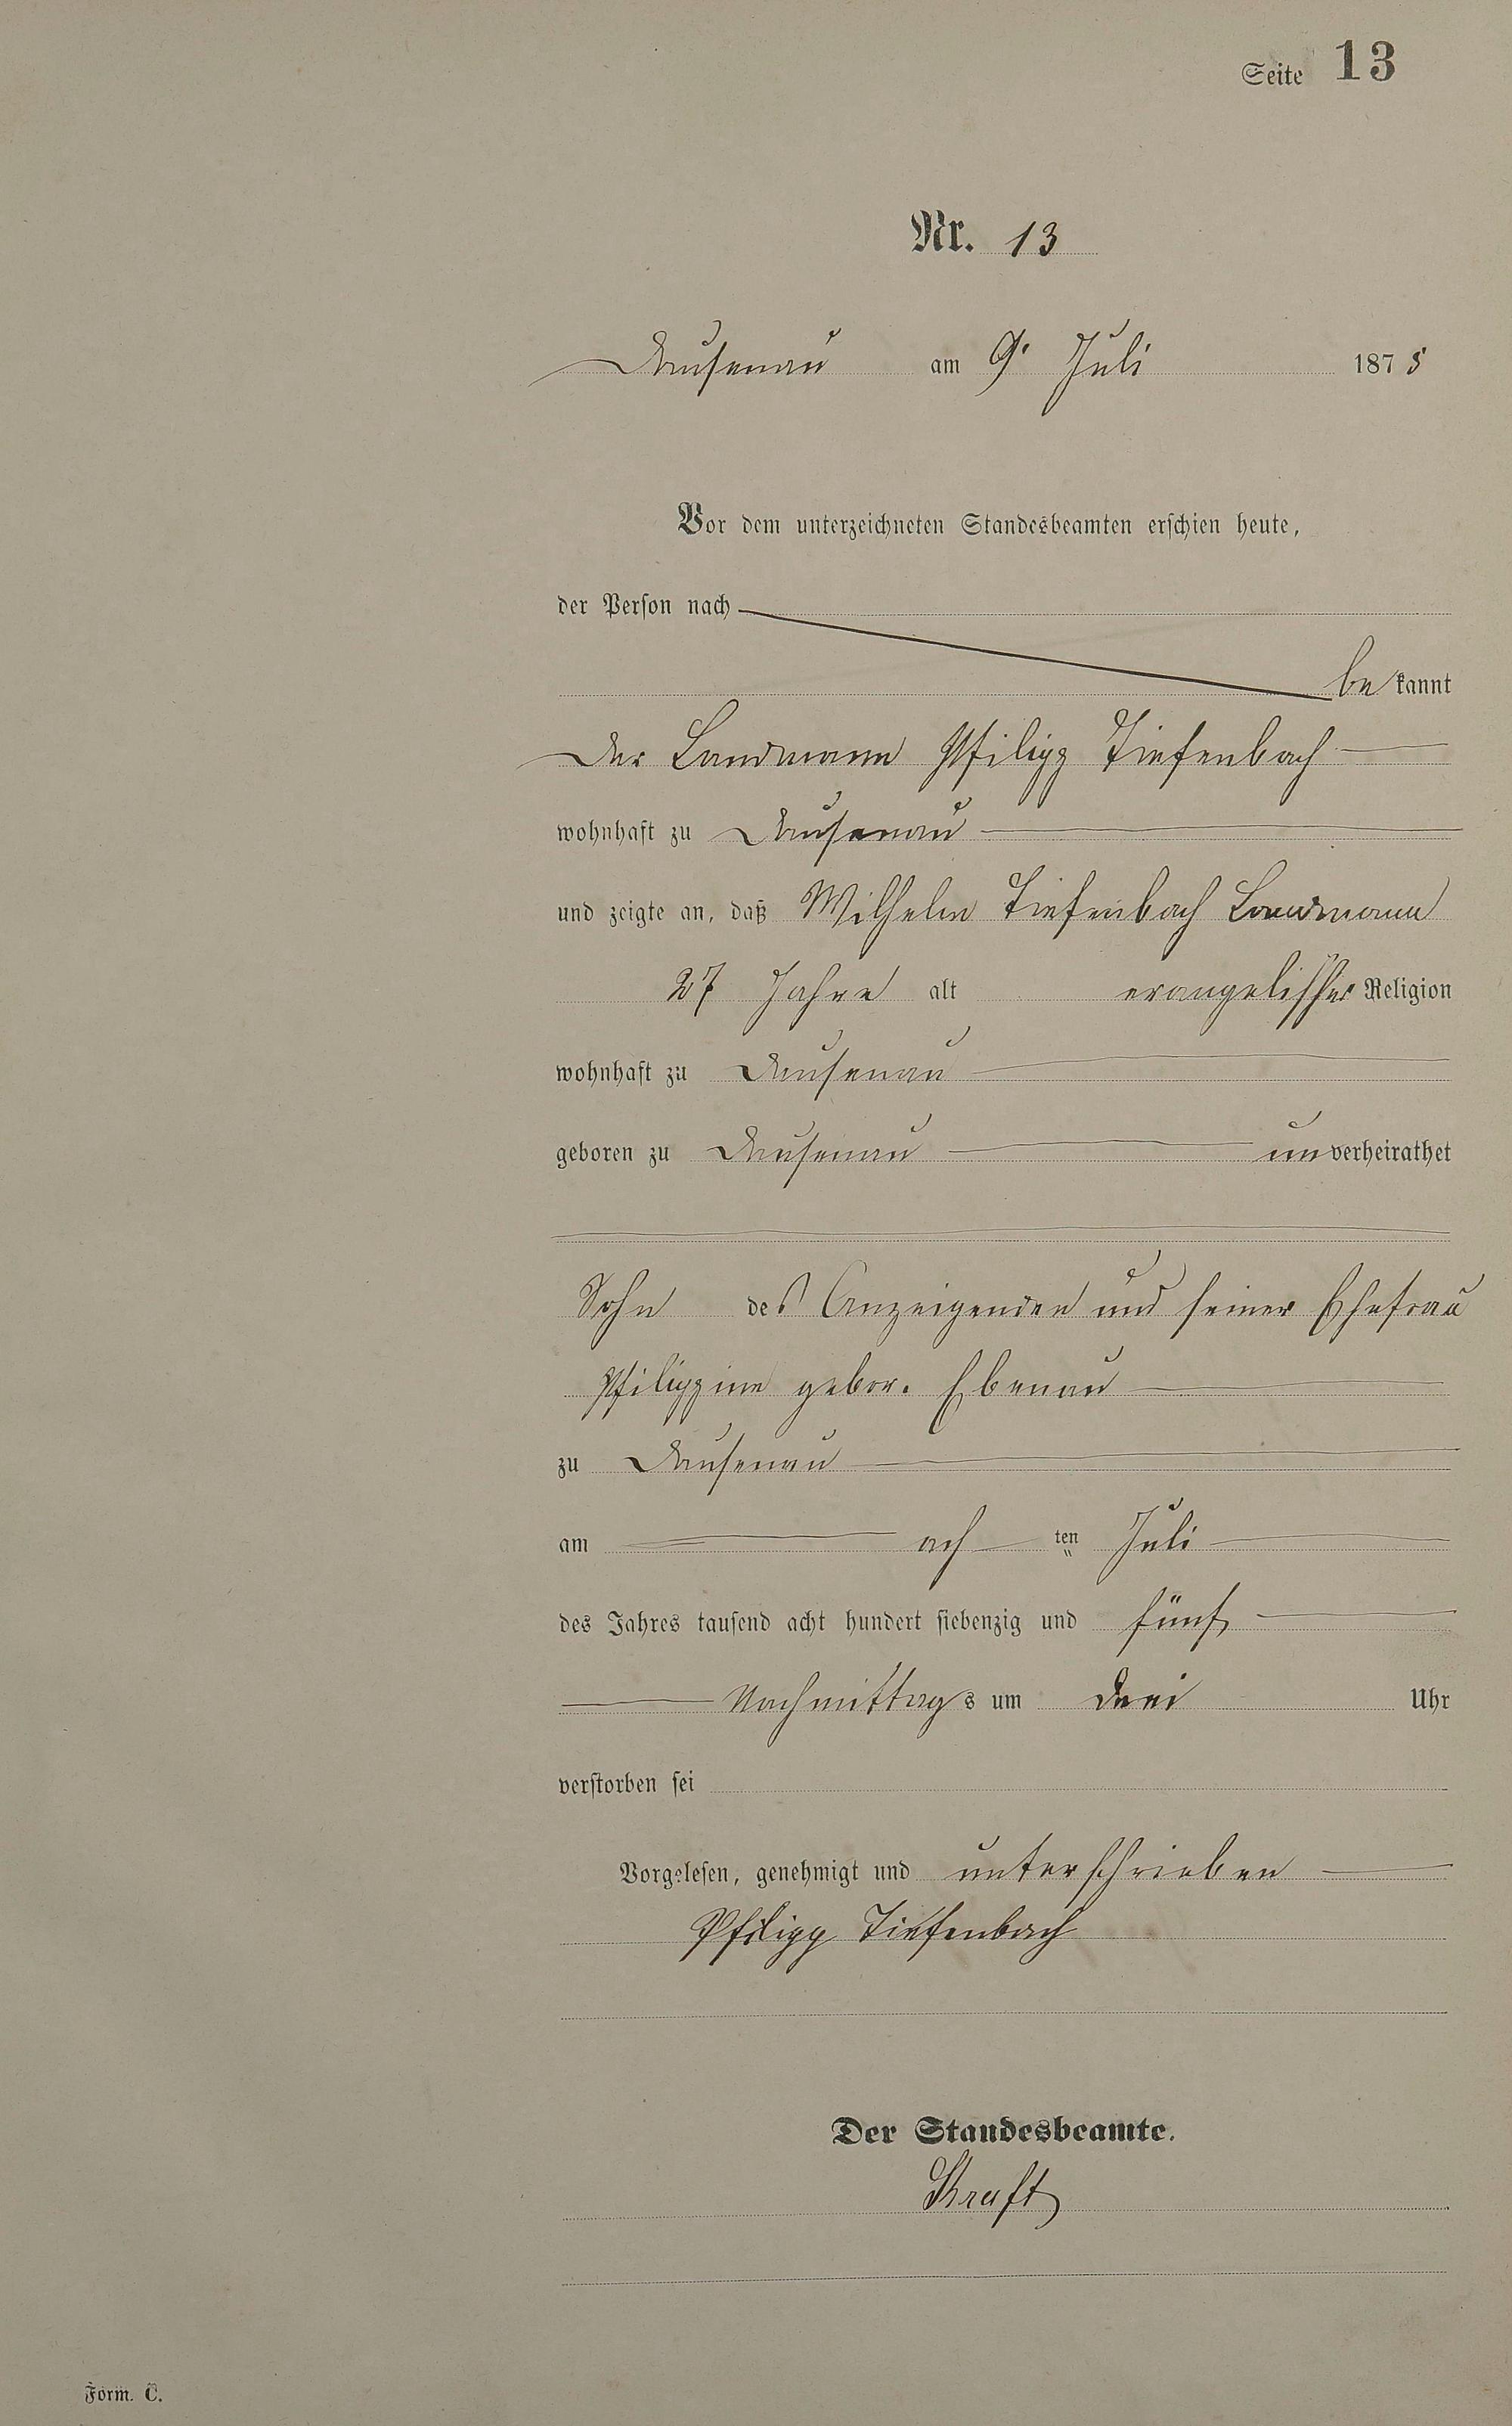 Seite 13
Nr. 13
Dausenau am 9. Juli 1875
Vor dem unterzeichneten Standesbeamten erschien heute,
der Person nach
bekannt
der Landmann Philipp Tiefenbach
wohnhaft zu Dausenau
und zeigte an, daß Wilhelm Tiefenbach Landmann
27 Jahre alt evangelischer Religion
wohnhaft zu Dausenau
geboren zu Dausenau unverheirathet
Sohn des Anzeigenden und seiner Ehefrau
Philippine gebor. Ebenau
zu Dausenau
am ach ten Juli
des Jahres tausend acht hundert siebenzig und fünf
Nachmittags um drei Uhr
verstorben sei
Vorgelesen, genehmigt und unterschrieben
Philipp Tiefenbach
Der Standesbeamte.
Kraft
Form. C.